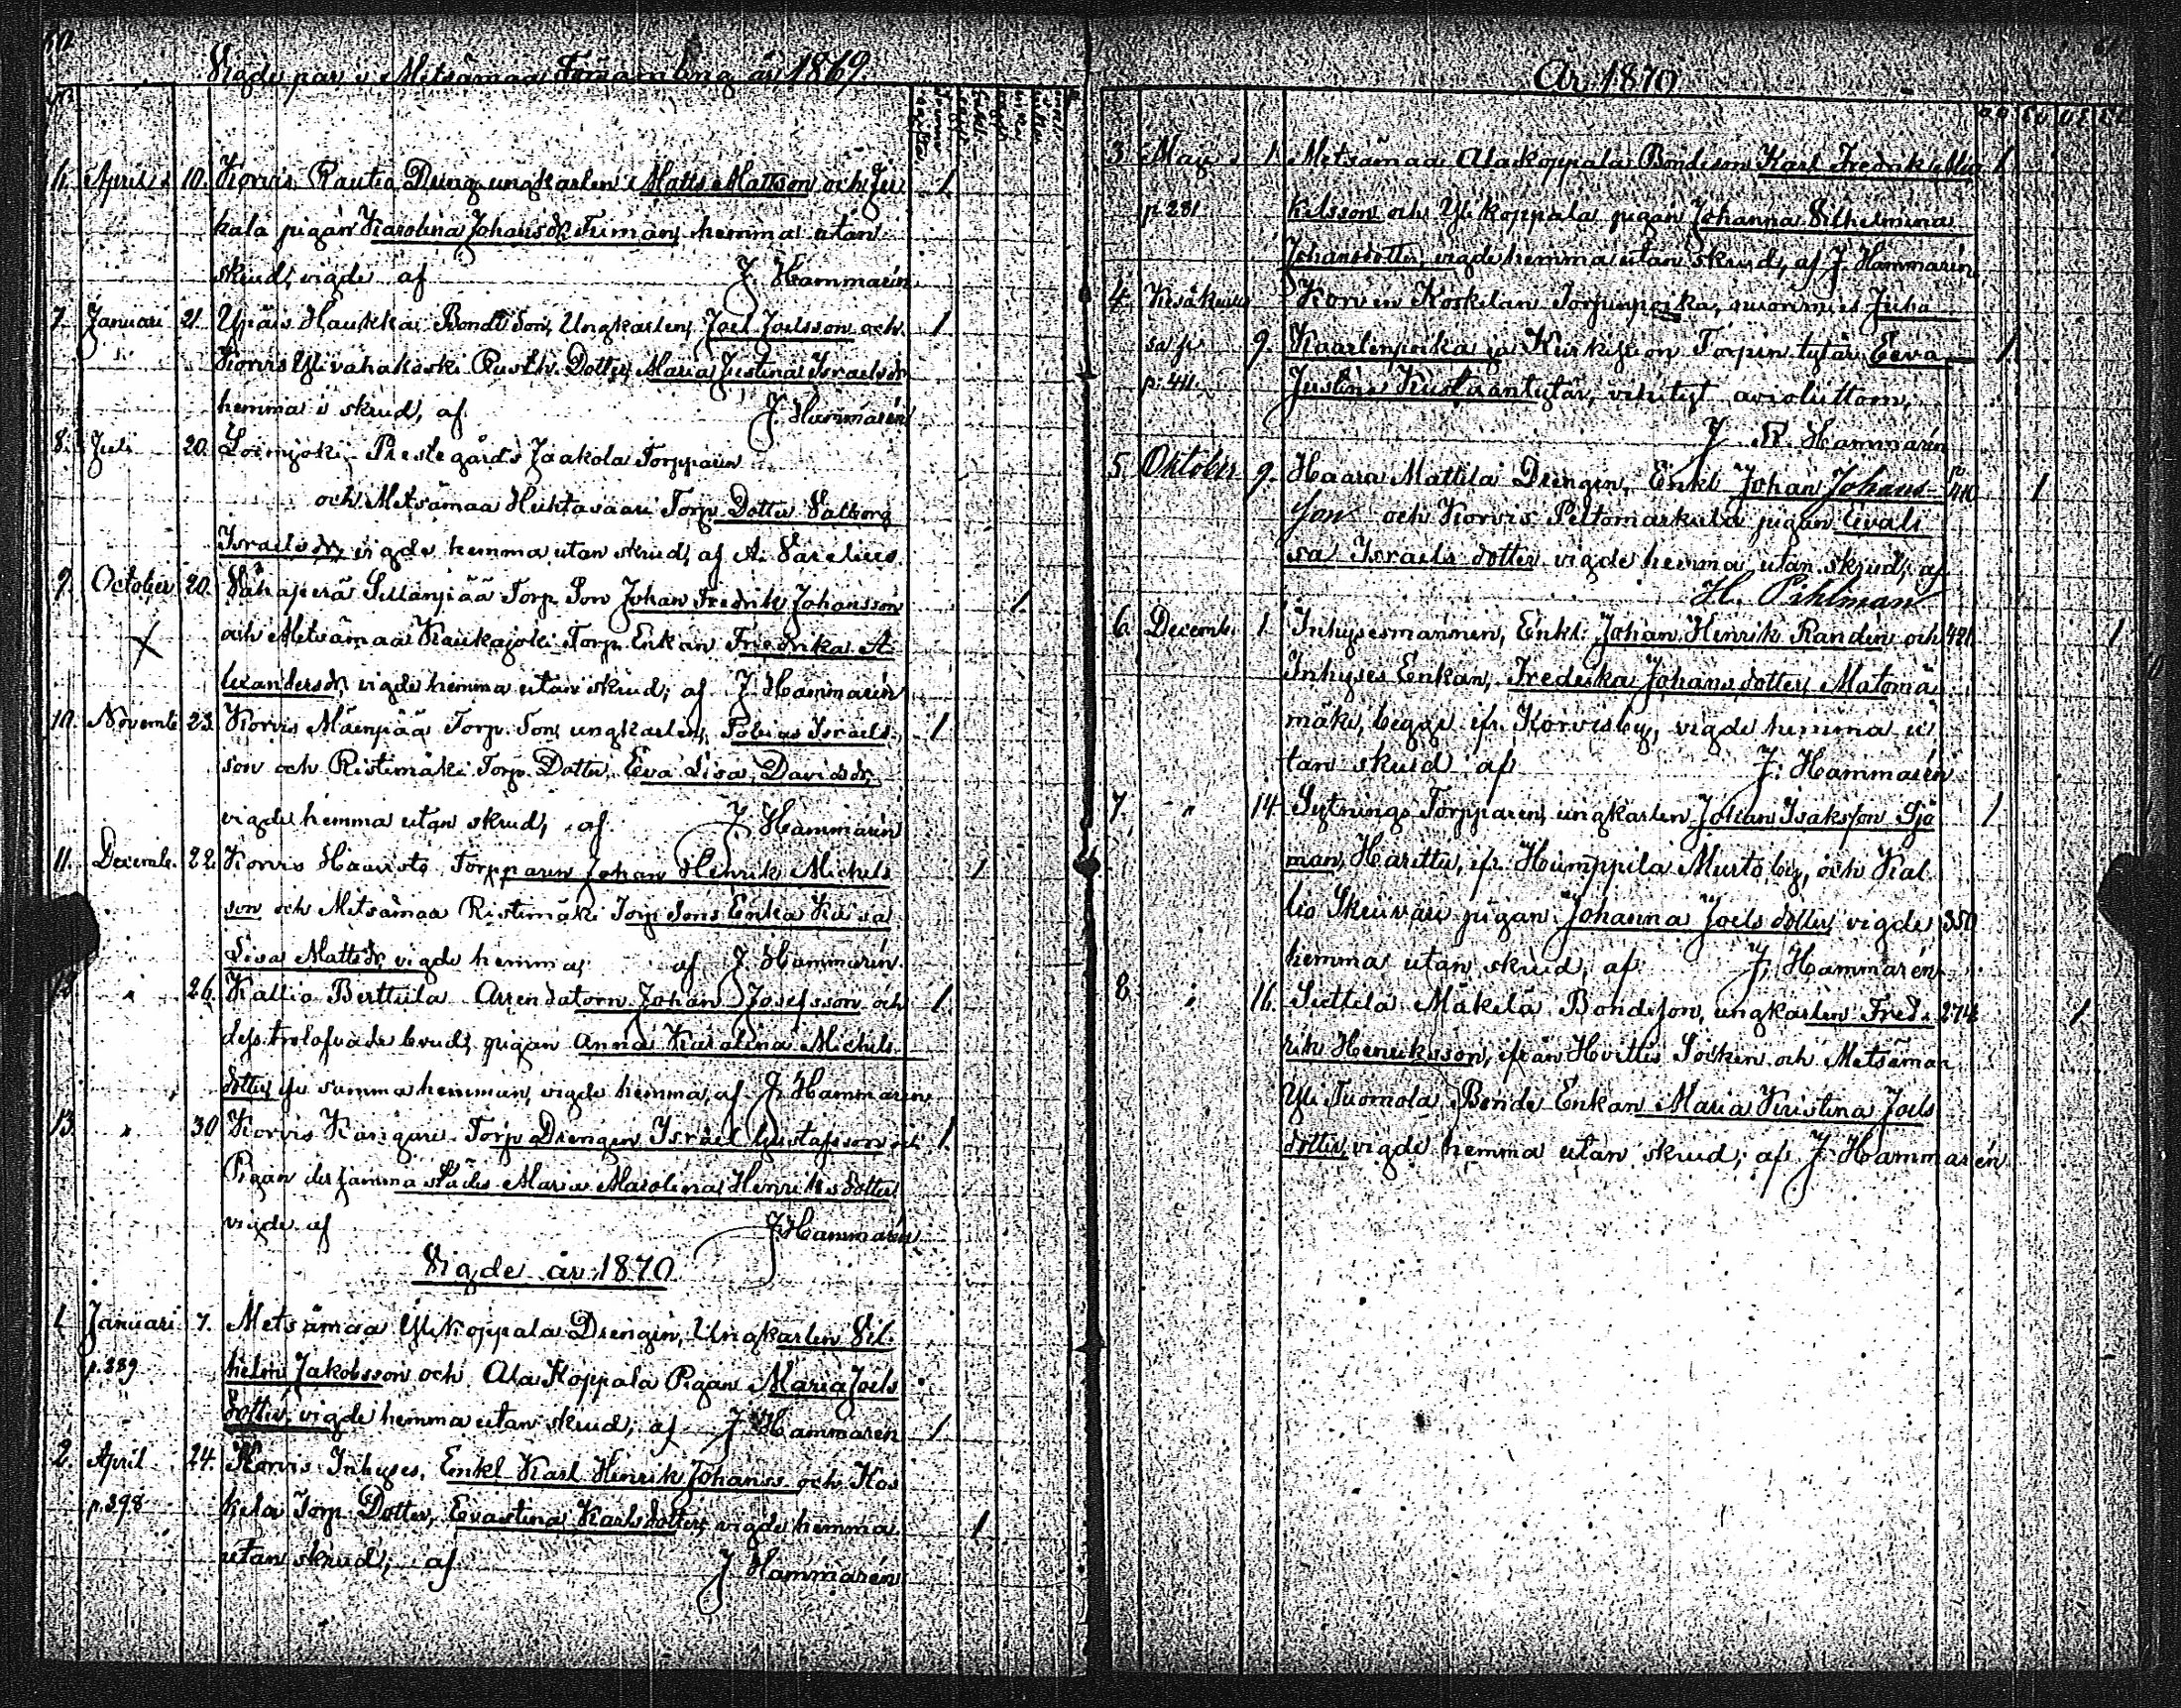 60.
Vigde par i Metsämaa Församling år 1869
6. April 10. Korvis Rautia Dräng ungkarlen Matts Mattsson och Ju 1
kala pigan Karolina Johansdr Tuman, hemma utan
skrud, vigde af J. Hammarén
7. Januari 21. Ypäis Haukka Bonde Son, Ungkarlen, Joel Joelsson och 1
Korvis Ylivahakoski Rusth. Dotter, Maria Justina Israelsdr
hemma i skrud, af J. Hammarén
8. Juli 20. Loimjoki Prestegårds Jaakola Torpparen
och Metsämaa Huhtasaari Torp. Dotter Valborg
Israelsdr, vigde hemma utan skrud, af A. Varelius
9. October 20. Vähäperä Sillanpää Torp. Son Johan Fredrik Johansson 1
och Metsämaa Kaukajoki Torp. Enkan Fredrika A-
lexandersdr, vigde hemma utan skrud; af J. Hammarén
10. Novemb. 23. Korvis Mäenpää Torp. Son, ungkarlen, Tobias Israels- 1
son och Ristimäki Torp. Dotter Eva Lisa Davidsdr,
vigde hemma utan skrud, af J. Hammarén
11. Decemb. 22. Korvis Haavisto Torpparen Johan Henrik Michels 1
son och Metsämaa Ristimäki Torp Sons Enka Kaisa
Lisa Mattsdr, vigde hemma, af J. Hammarén.
12. " 26. Kallio Berttula Arrendatorn Johan Josefsson och 1
dess trolofvade brud, pigan Anna Karolina Michels
dotter ifr. samma hemman, vigde hemma, af J. Hammarén
13. " 30 Korvis Kangare Torp Drengen Israel Gustafsson och 1
Pigan der samma städes Maria Karolina Henriksdotter
vigde af J. Hammarén
Vigde år 1870
1. Januari 7. Metsämaa Ylikoppala Drengen, Ungkarlen Vil-
p. 389 helm Jakobsson och Ala Koppala Pigan Maria Joels
dotter, vigde hemma utan skrud; af J. Hammarén 1
2. April 24. Korvis Inhyses, Enkl. Karl Henrik Johanss. och Kos
p. 398 kela Torp. Dotter, Evastina Karlsdotter, vigde hemma 1
utan skrud; af J Hammarén
61
År 1870
3 Maij 1. Metsämaa Alakoppala Bondeson Karl Fredrik Mic 1
p. 281 kelsson och Ylikoppala pigan Johanna Vilhelmina
Johansdotter, vigde hemma utan skrud, af J. Hammarén
4. Kesäkuus Korven Koskelan Torpinpoika, nuorimies Juha
sa p. 9. Kaarlenpoika ja Kurkijoen Torpin tytär, Eeva 1
p. 411. Justina Kustaantytär, vihityt avioliittoon,
J. K. Hammarén
5. Oktober 9. Haara Mattila Drengen, Enkl. Johan Johans- p. 410 1
son och Korvis Peltomarkula pigan Evali
sa Israels dotter vigde hemma utan skrud, af
H. Pihlman
6. Decemb. 1. Inhysesmannen, Enkl. Johan Henrik Randén och 421 1
Inhyses Enkan, Fredrika Johans dotter Matomä
mäki, begge ifr. Korvisby, vigde hemma u
tan skrud af J. Hammarén
7. " 14. Sytnings Torpparen, ungkarlen Johan Isaksson Sjö 1
man, Harittu, ifr. Humppila Murto by, och Kal
lio Skruvari pigan Johanna Joels dotter, vigde 350
hemma utan skrud, af J. Hammarén
8 " 16. Suttila Mäkelä Bondeson, ungkarlen Fred- 274 1
rik Henriksson, ifrån Hvittis Socken och Metsämaa
Yli Tuomola Bonde Enkan Maria Kristina Joels
dotter, vigde hemma utan skrud; af J. Hammarén